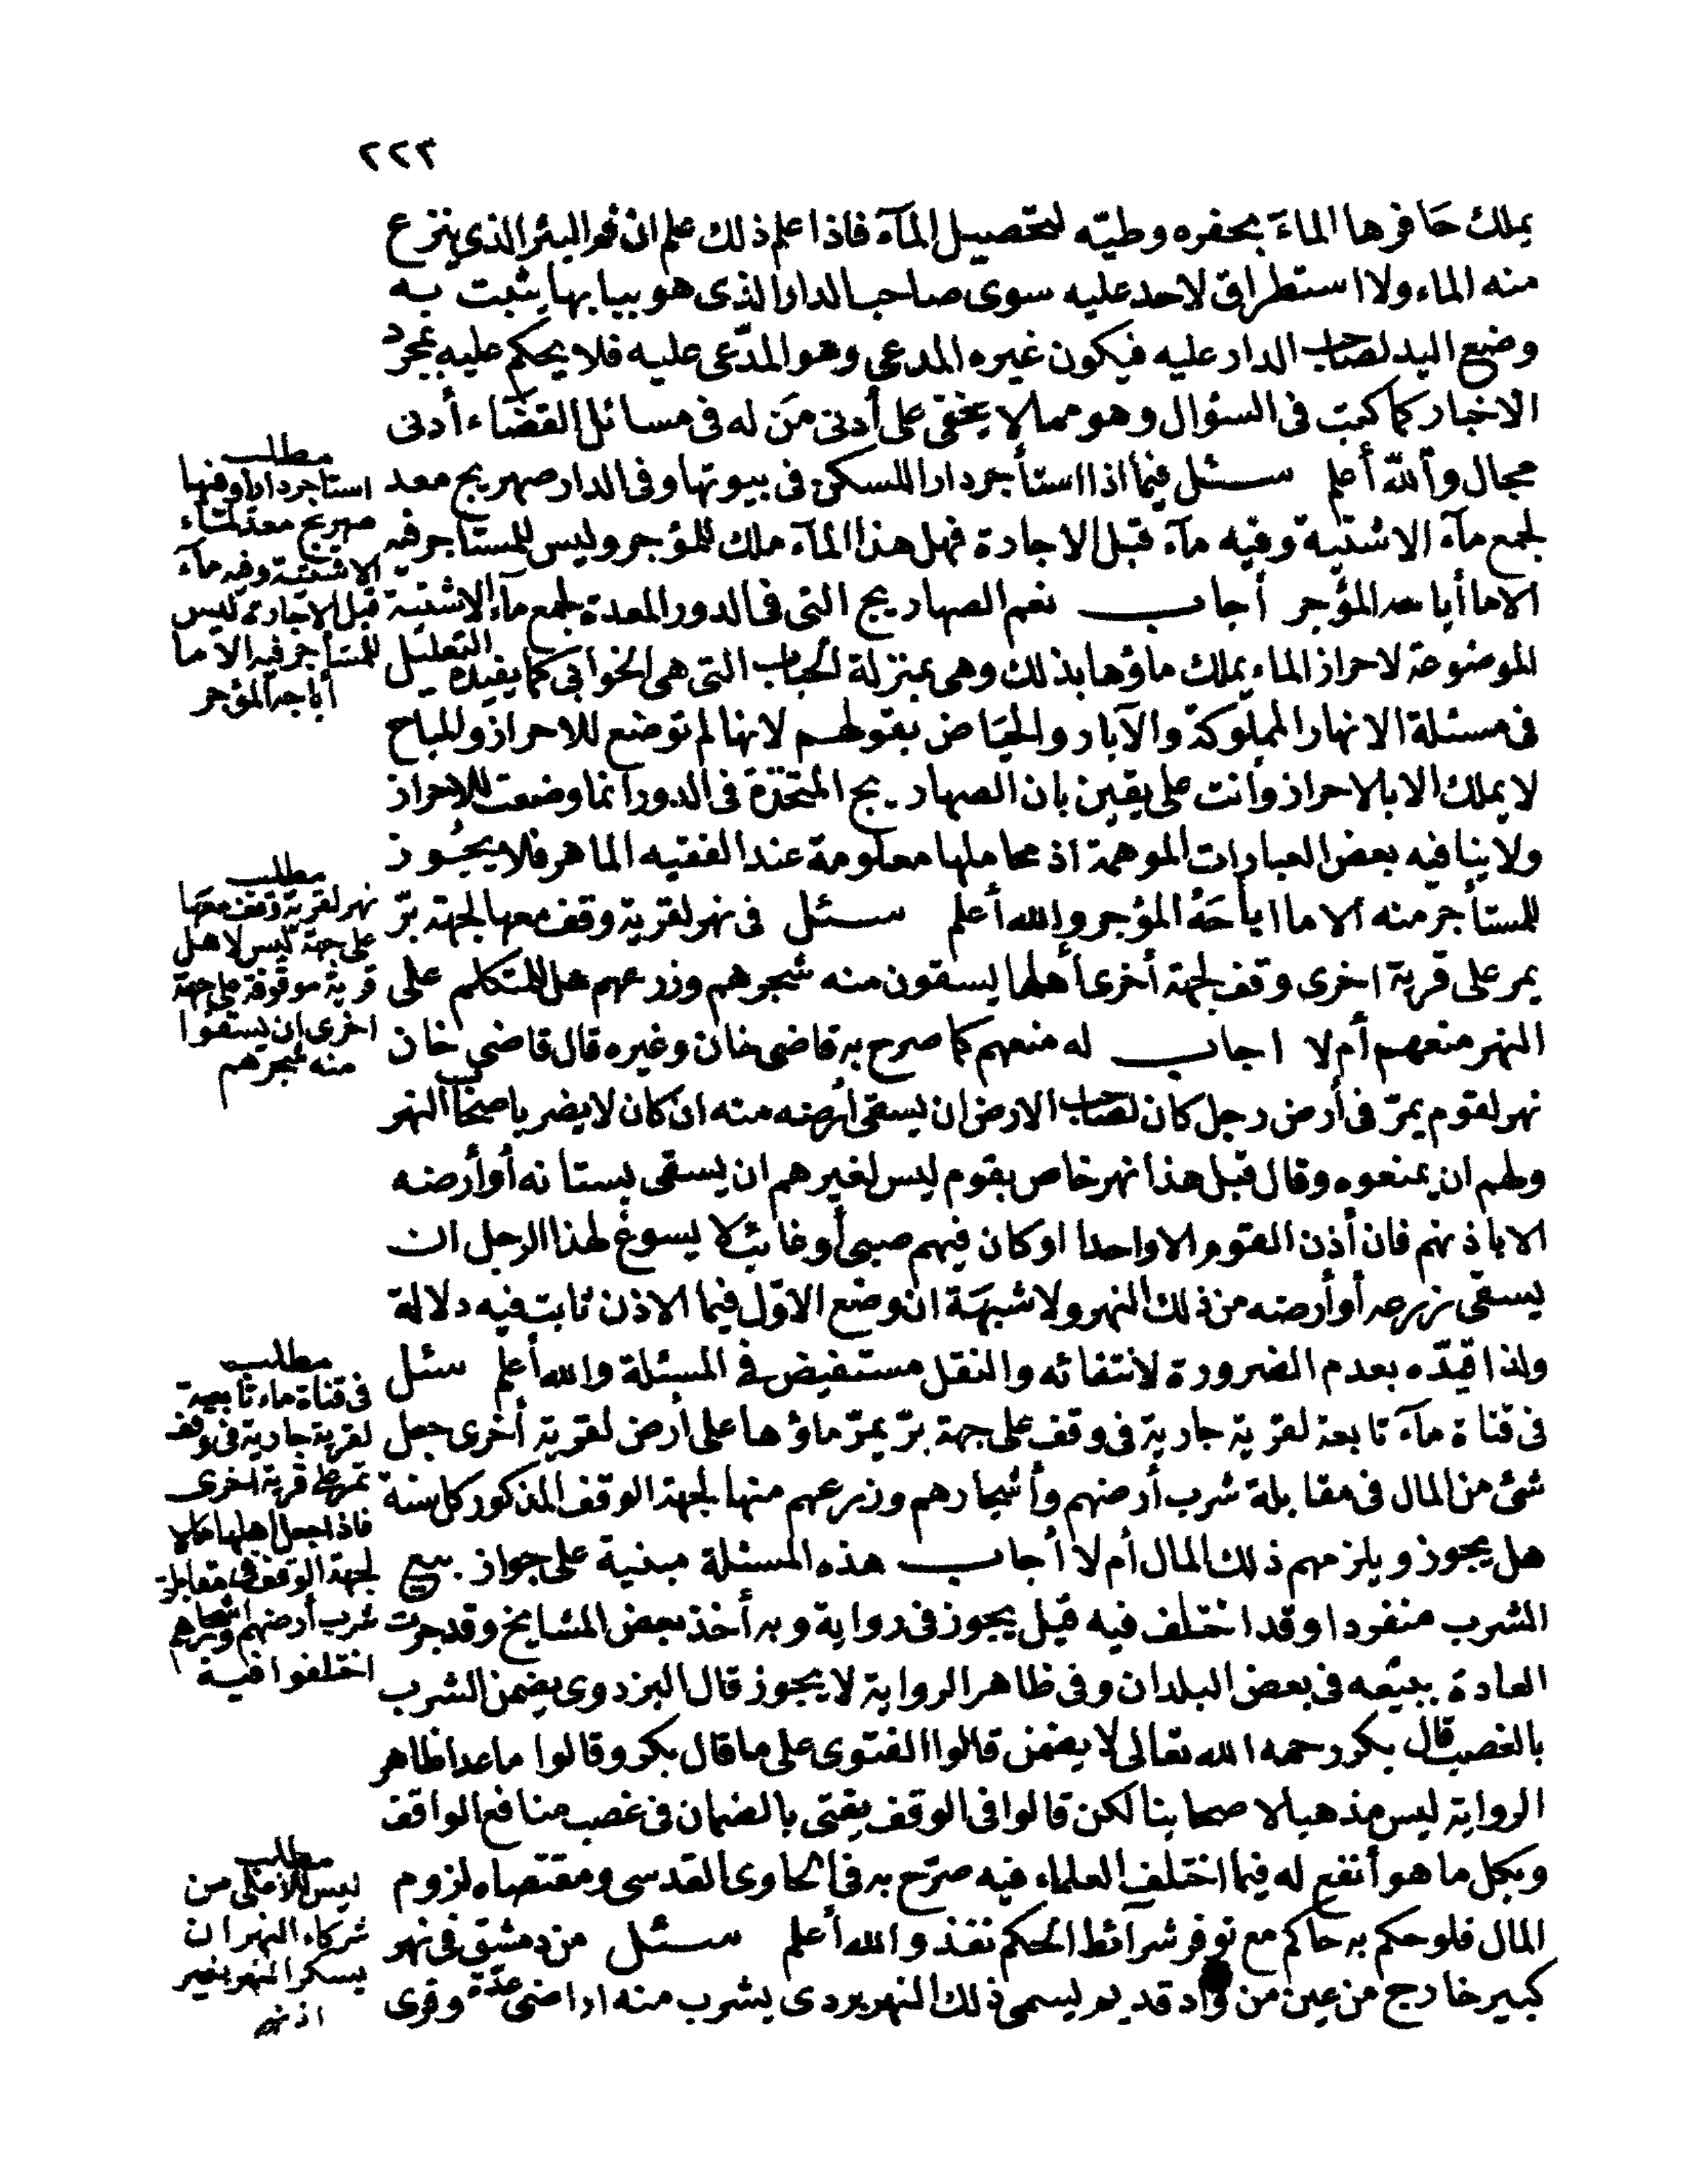 ٢٢٣
يملك حَافرها الماءَ بحفره وطيّه لتحصيل المآء فاذا علم ذلك علم ان فم البئر الذى ينزع
منه الماء ولا استطراق لاحد عليه سوى صاحب الدار الذى هو ببابها يثبت به
وضع اليد لصاحب الدار عليه فيكون غيره المدعى وهو المدّعى عليه فلا يحكم عليه بمجرد
الاخبار كما كتبت فى السؤال وهو مما لا يخفى على أدنى مَن له فى مسائل القضَاء أدنى
مجال والله أعلم سئل فيما اذا استأجر دارا للسكن فى بيوتها وفى الدار صهريج معد
لجمع مآء الاشتية وفيه مآء قبل الاجارة فهل هذا المآء ملك للمؤجر وليس للمستأجر فيه
الا ما أباحه المؤجر أجاب نعم الصهاريج التى فى الدور المعدة لجمع مآء الاشتية
الموضوعة لاحراز الماء يملك ماؤها بذلك وهى بمنزلة الحباب التى هى الخوابى كما يفيده التعليل
فى مسئلة الانهار المملوكة والآبار والحيَاض بقولهم لانها لم توضع للاحراز والمباح
لا يملك الا بالاحراز وأنت على يقين بان الصهاريج المتخذة فى الدور انما وضعت للاحراز
ولا ينافيه بعض العبارات الموهمة اذ محاملها معلومة عند الفقيه الماهر فلا يجُوز
للمستأجر منه الا ما اباحَهُ المؤجر والله أعلم سئل فى نهر لقرية وقف معها لجهة برّ
يمر على قرية اخرى وقف لجهة أخرى أهلها يسقون منه شجرهم وزرعهم هل للمتكلم على
النهر منعهم أم لا اجاب له منعهم كما صرح به قاضى خان وغيره قال قاضى خان
نهر لقوم يمرّ فى أرض رجل كان لصاحب الارض ان يسقى أرضه منه ان كان لا يضر باصحاب النهر
ولهم ان يمنعوه وقال قبل هذا نهر خاص بقوم ليس لغيرهم ان يسقى بستانه أو أرضه
الا باذنهم فان أذن القوم الا واحدا او كان فيهم صبى أو غائب لا يسوغ لهذا الرجل ان
يسقى زرعه أو أرضه من ذلك النهر ولا شبهَة ان وضع الاوّل فيما الاذن ثابت فيه دلالة
ولذا قيدّه بعدم الضرورة لانتفائه والنقل مستفيض فى المسئلة والله أعلم سئل
فى قناة مآء تابعة لقرية جارية فى وقف على جهة برّ يمرّ ماؤها على أرض لقرية أخرى جعل
شئ من المال فى مقابلة شرب أرضهم وأشجارهم وزرعهم منها لجهة الوقف المذكور كل سنة
هل يجوز ويلزمهم ذلك المال أم لا أجاب هذه المسئلة مبنية على جواز بيع
الشرب منفردا وقد اختلف فيه قيل يجوز فى رواية وبه أخذ بعض المشايخ وقد جرت
العادة ببيعه فى بعض البلدان وفى ظاهر الرواية لا يجوز قال البزدوى يضمن الشرب
بالغصب قال بكر رحمه الله تعالى لا يضمن قالوا الفتوى على ما قال بكر وقالوا ما عدا ظاهر
الرواية ليس مذهبا لاصحابنا لكن قالوا فى الوقف يفتى بالضمان فى غصب منافع الواقف
وبكل ما هو أنفع له فيما اختلف العلماء فيه صرّح به فى الحاوى القدسى ومقتضاه لزوم
المال فلو حكم به حاكم مع توفر شرآئط الحكم نفذ والله أعلم سئل من دمشق فى نهر
كبير خارج من عين من واد قديم يسمى ذلك النهر بردى يشرب منه اراضى عدّة وقرى
مطلب
استأجر دارا وفيها
صهريج معد لمآء
الاشتية وفيه مآء
قبل الاجارة ليس
للمستأجر فيه الا ما
أباحه المؤجر
مطلب
نهر لقرية وقف معها
على جهة ليس لاهل
قرية موقوفة على جهة
اخرى ان يسقوا
منه شجرهم
مطلب
فى قناة ماء تابعة
لقرية جارية فى وقف
تمر على قرية اخرى
فاذا جعل أهلها مالا
لجهة الوقف فى مقابلة
شرب أرضهم وشجرهم
اختلفوا فيه
مطلب
ليس للأعلى من
شركاء النهر ان
يسكر النهر بغير
اذنهم